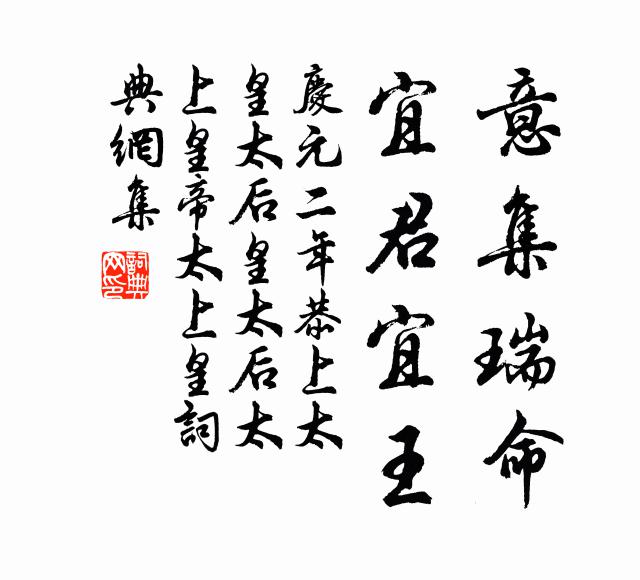 意集瑞命
宜君宜王
慶元二年恭上太
皇太后皇太后太
上皇帝太上皇詞
典網集
詞典網印